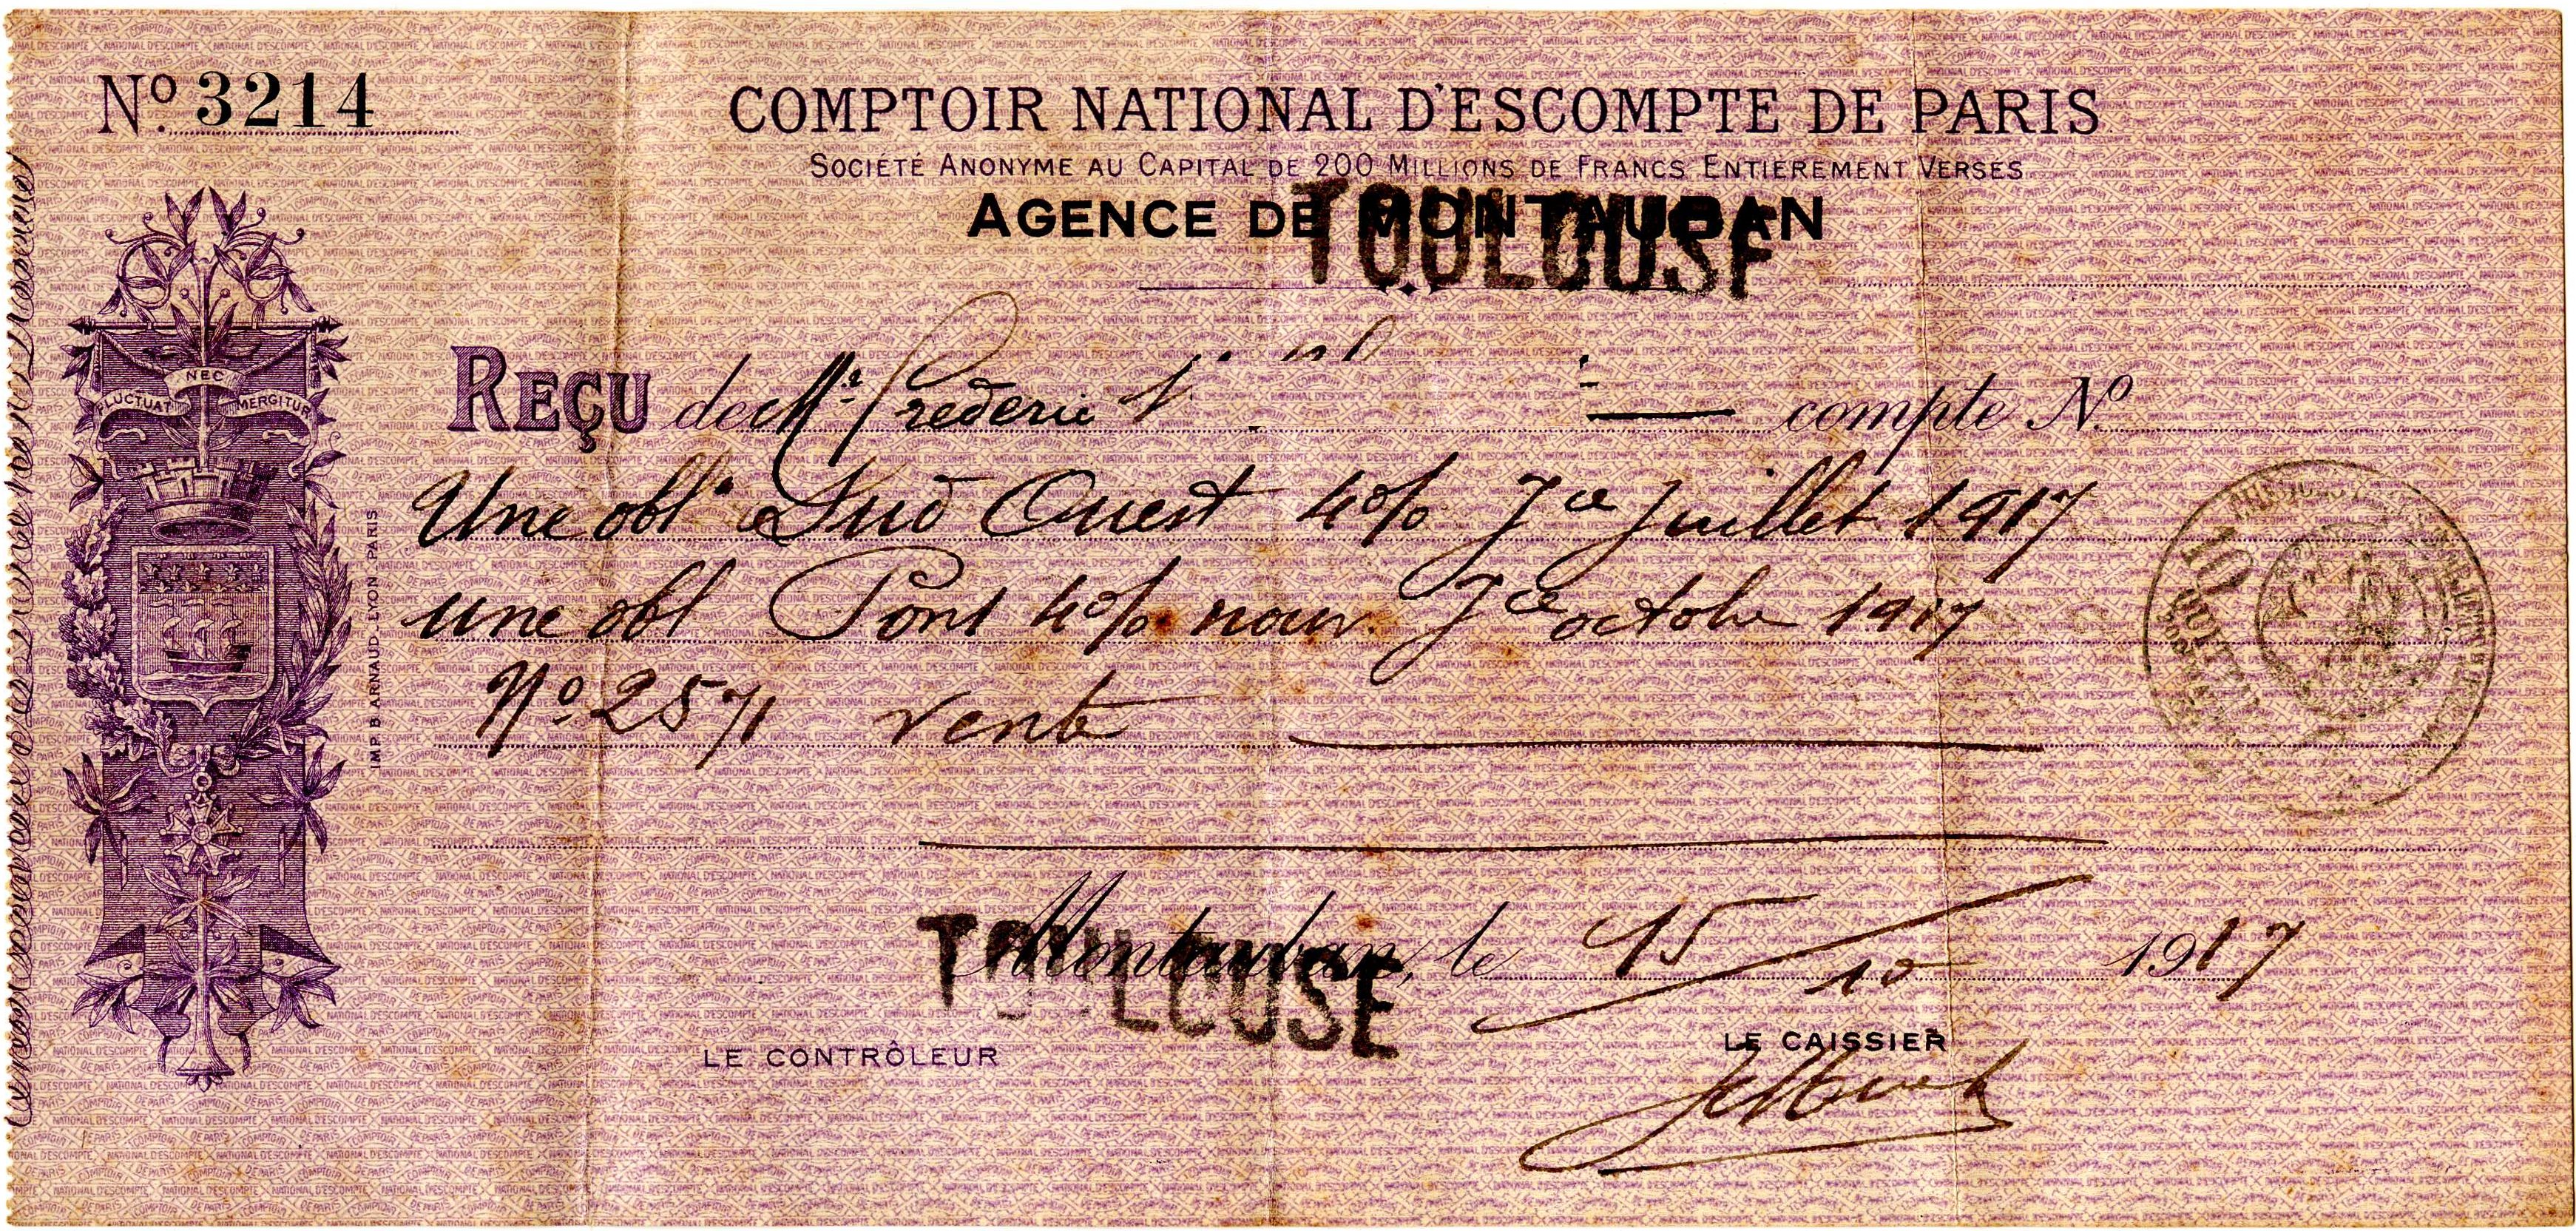 Nº 3214
COMPTOIR NATIONAL D'ESCOMPTE DE PARIS
SOCIÉTÉ ANONYME AU CAPITAL DE 200 MILLIONS DE FRANCS ENTIEREMENT VERSES
AGENCE DE MONTAUBAN
TOULOUSE
NEC
FLUCTUAT MERGITUR
REÇU de Mr. Frederic compte Nº
Une oblon Sud Ouest 4% Jce Juillet 1917
une obl Pont 4% nouv. Jce octobre 1917
Nº 2571 vente
10
IMP. B. ARNAUD LYON-PARIS
Montauban, le 15/10 1917
TOULOUSE
LE CONTRÔLEUR
LE CAISSIER